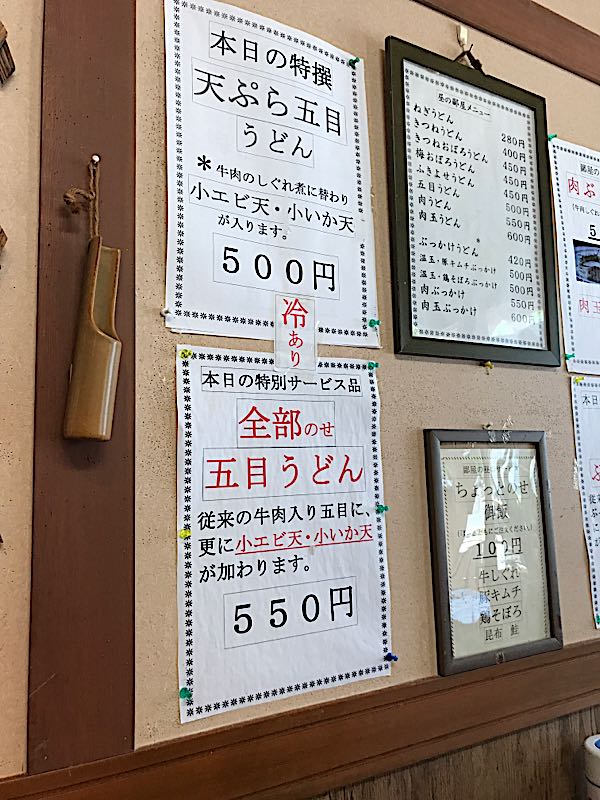 本日の特撰
天ぷら五目
うどん
＊牛肉のしぐれ煮に替わり
小エビ天・小いか天
が入ります。
５００円
冷あり
本日の特別サービス品
全部のせ
五目うどん
従来の牛肉入り五目に、
更に小エビ天・小いか天
が加わります。
５５０円
昼の郷屋メニュー
ねぎうどん 280円
きつねうどん 400円
きつねおぼろうどん 450円
梅おぼろうどん 450円
ふきよせうどん 450円
五目うどん 450円
肉うどん 500円
肉玉うどん 550円
600円
ぶっかけうどん 420円
温玉・豚キムチぶっかけ 500円
温玉・鶏そぼろぶっかけ 500円
肉ぶっかけ 550円
肉玉ぶっかけ 600円
ちょっとのせ
御飯
100円
牛しぐれ
豚キムチ
鶏そぼろ
昆布 鮭
肉ぶ
肉玉